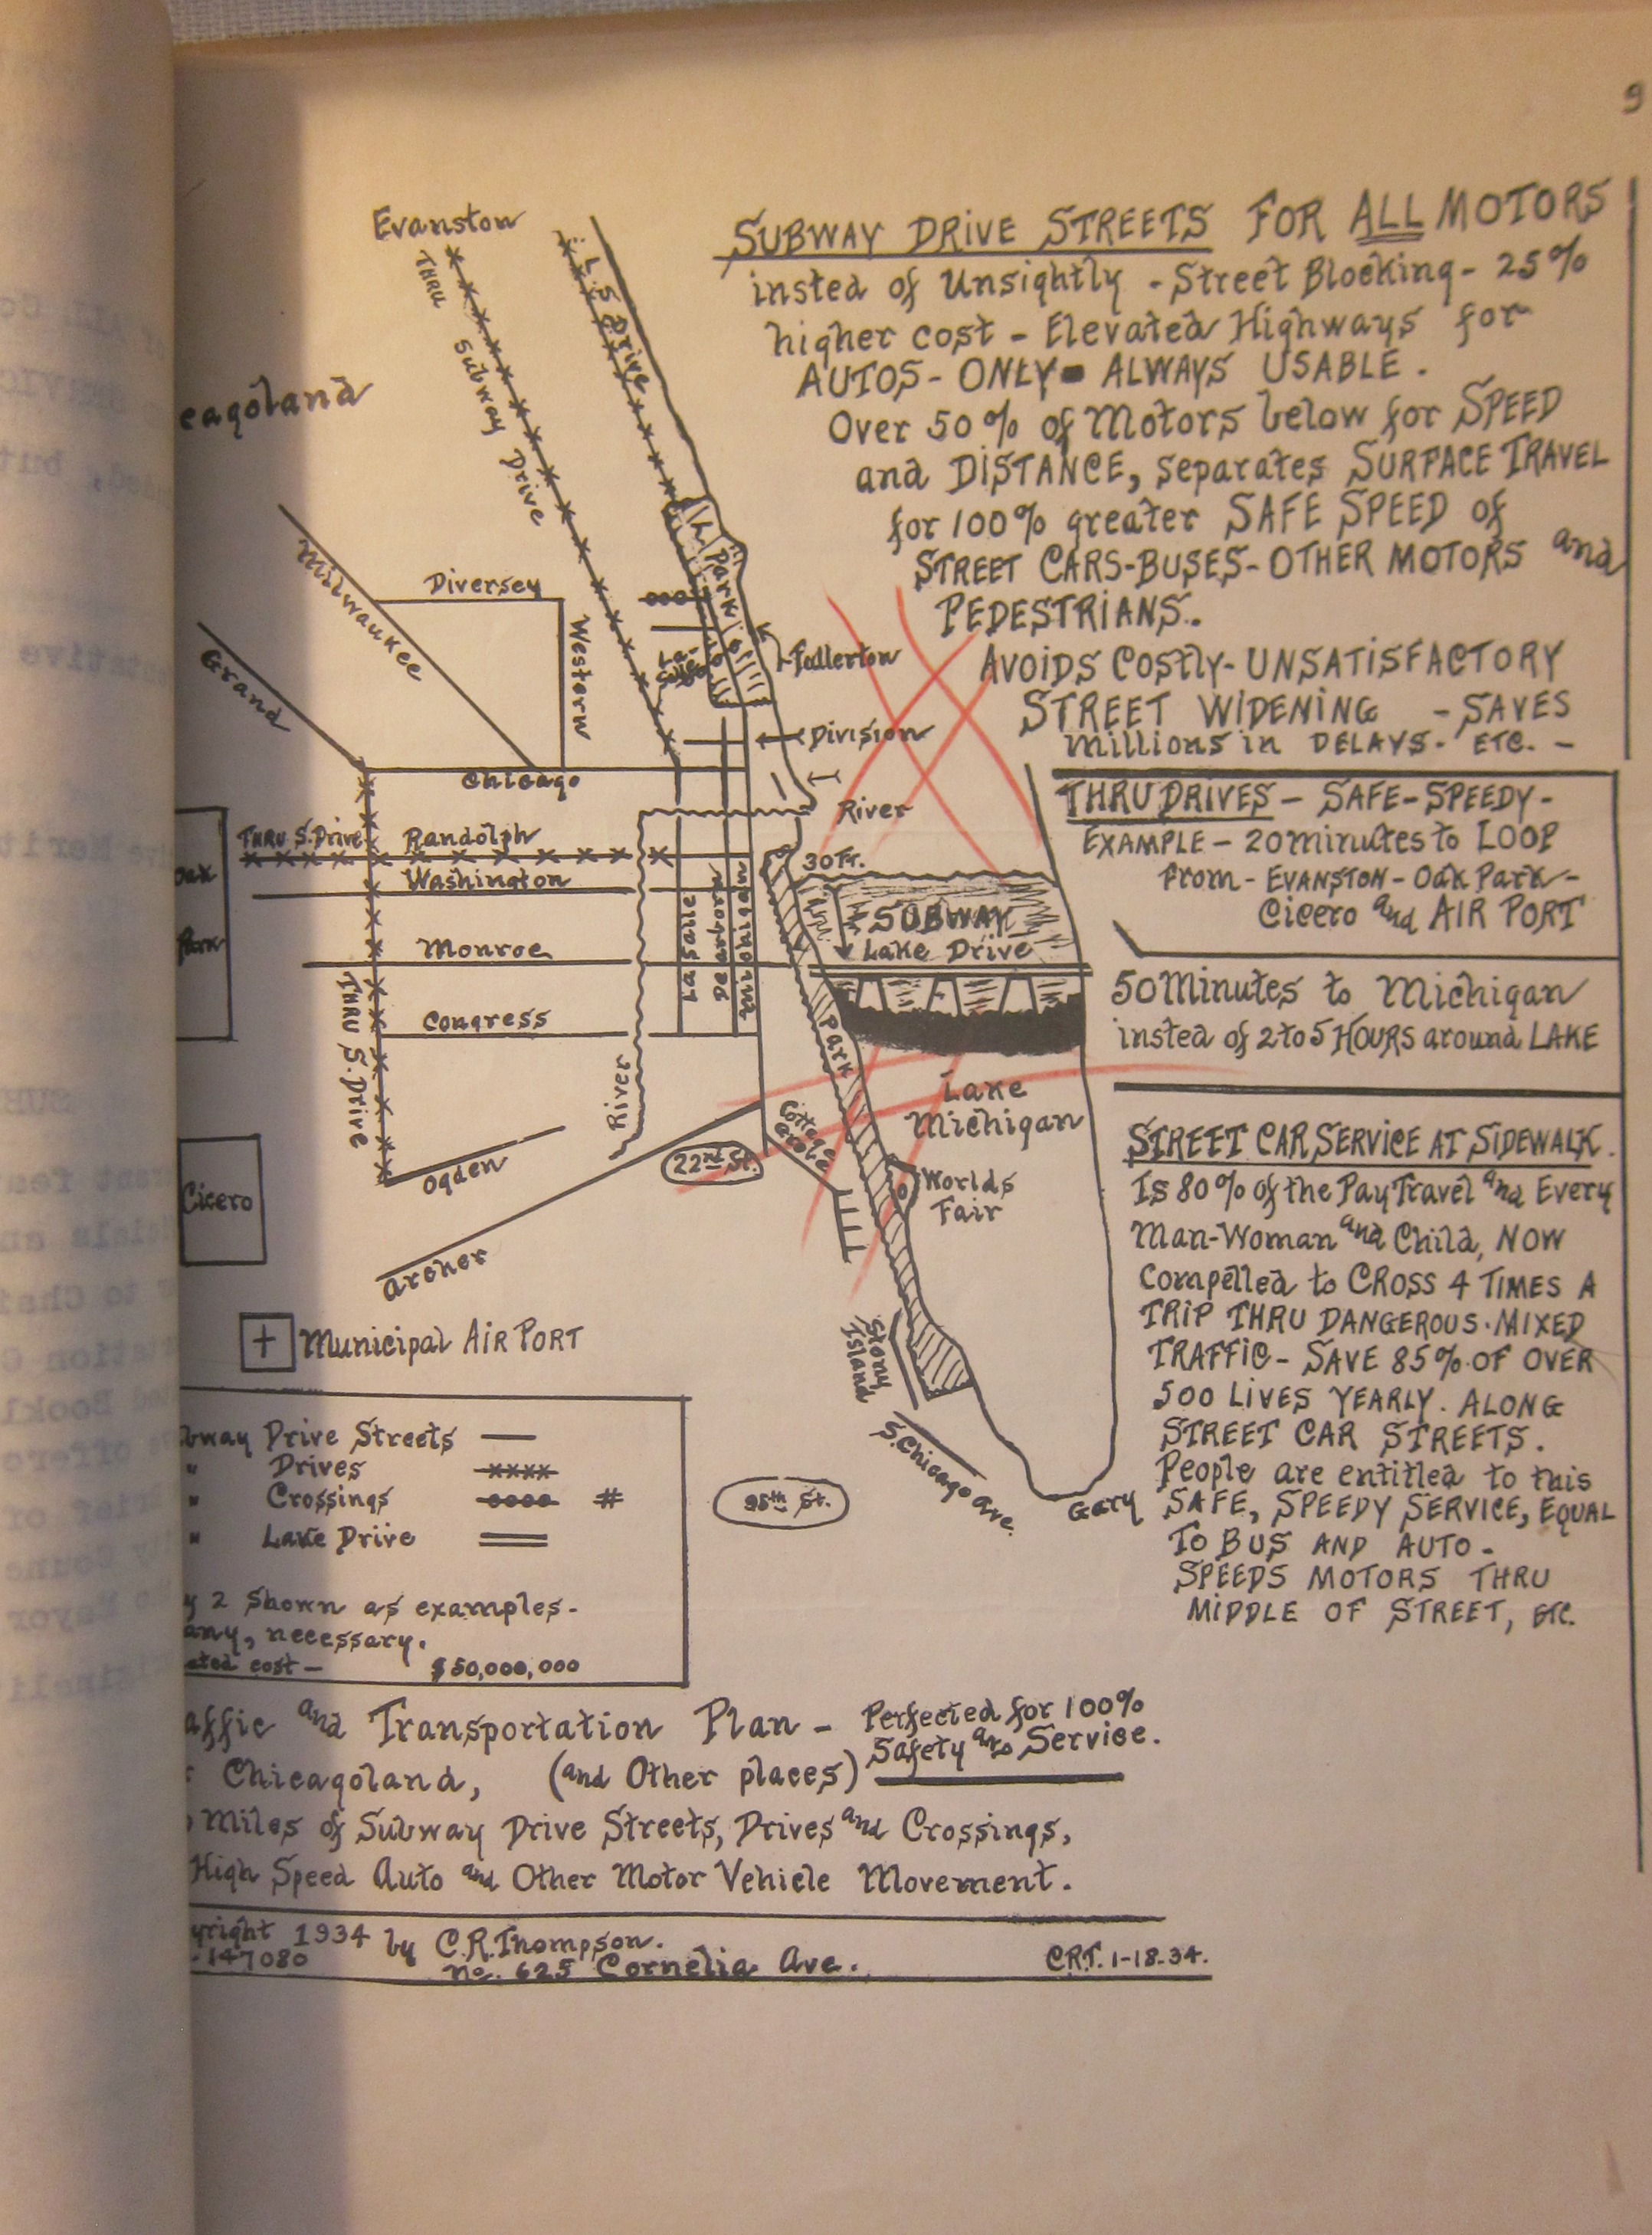 9
SUBWAY DRIVE STREETS FOR ALL MOTORS
insted of Unsightly - Street Blocking - 25%
higher cost - Elevated Highways for
AUTOS - ONLY - ALWAYS USABLE.
Over 50% of Motors below for SPEED
and DISTANCE, separates SURFACE TRAVEL
for 100% greater SAFE SPEED of
STREET CARS-BUSES-OTHER MOTORS and
PEDESTRIANS.
AVOIDS COSTLY - UNSATISFACTORY
STREET WIDENING - SAVES
Millions in DELAYS - ETC. -
THRU DRIVES - SAFE - SPEEDY -
EXAMPLE - 20 minutes to LOOP
From - EVANSTON - Oak Park -
Cicero and AIR PORT
50 Minutes to Michigan
insted of 2 to 5 HOURS around LAKE
STREET CAR SERVICE AT SIDEWALK.
Is 80% of the Pay Travel and Every
Man-Woman and Child, NOW
Compelled to CROSS 4 TIMES A
TRIP THRU DANGEROUS-MIXED
TRAFFIC - SAVE 85% OF OVER
500 LIVES YEARLY. ALONG
STREET CAR STREETS.
People are entitled to this
SAFE, SPEEDY SERVICE, EQUAL
TO BUS AND AUTO -
SPEEDS MOTORS THRU
MIDDLE OF STREET, ETC.
Evanston
THRU Subway Drive
L. S. Drive
eagoland
Milwaukee
Grand
Diversey
Western
L. Park
La Salle
Fullerton
Division
Chicago
River
THRU S. Drive
Randolph
Washington
Monroe
Congress
Oak
Park
La Salle
Dearborn
Michigan
30 Ft.
SUBWAY
Lake Drive
THRU S. Drive
River
Park
Lake
Michigan
Ogden
Cicero
22nd St.
Cottage Grove
Worlds
Fair
Archer
Municipal AIR PORT
Stony
Island
S. Chicago Ave.
95th St.
Gary
bway Drive Streets
" Drives
" Crossings #
" Lake Drive
y 2 shown as examples -
any, necessary.
ated cost - $50,000,000
affic and Transportation Plan - Perfected for 100%
Safety and Service.
Chicagoland, (and Other places)
Miles of Subway Drive Streets, Drives and Crossings,
High Speed Auto and Other Motor Vehicle Movement.
yright 1934 by C.R. Thompson.
-147080
No. 625 Cornelia Ave.
C.R.T. 1-18-34.